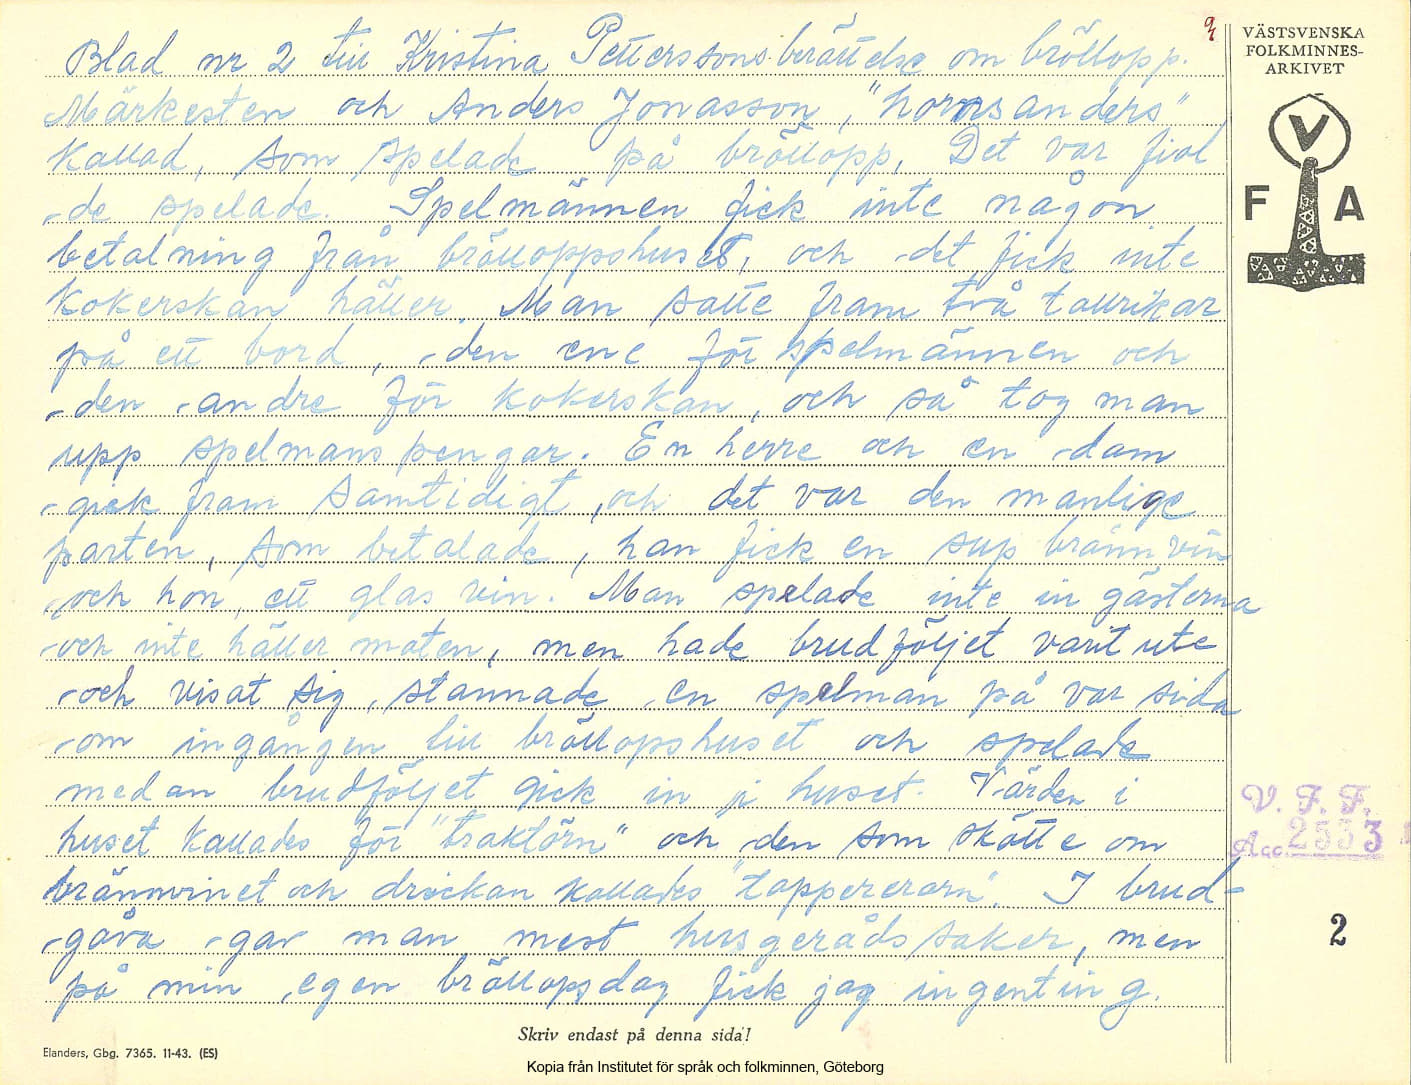 Blad nr 2 till Kristina Petterssons berättelse om bröllopp.
Märkesten och Anders Jonasson, "hornsanders"
kallad, som spelade på bröllopp. Det var fiol
de spelade. Spelmännen fick inte någon
betalning från brölloppshuset, och det fick inte
kokerskan häller. Man satte fram två tallrikar
på ett bord, den ene för spelmännen och
den andre för kokerskan, och så tog man
upp spelmanspengar. En herre och en dam
gick fram samtidigt, och det var den manlige
parten, som betalade, han fick en sup brännvin
och hon, ett glas vin. Man spelade inte in gästerna
och inte häller maten, men hade brudföljet varit ute
och visat sig, stannade en spelman på var sida
om ingången till bröllopshuset och spelade
medan brudföljet gick in i huset. Värden i
huset kallades för "traktörn" och den som skötte om
brännvinet och drickan kallades "tappererarn". I brud-
gåva gav man mest husgerådssaker, men
på min egen bröllopsdag fick jag ingenting.
Skriv endast på denna sida!
Elanders, Gbg. 7365. 11-43. (ES)
Kopia från Institutet för språk och folkminnen, Göteborg
VÄSTSVENSKA
FOLKMINNES-
ARKIVET
V
F A
V. F. F.
Acc. 2533
2